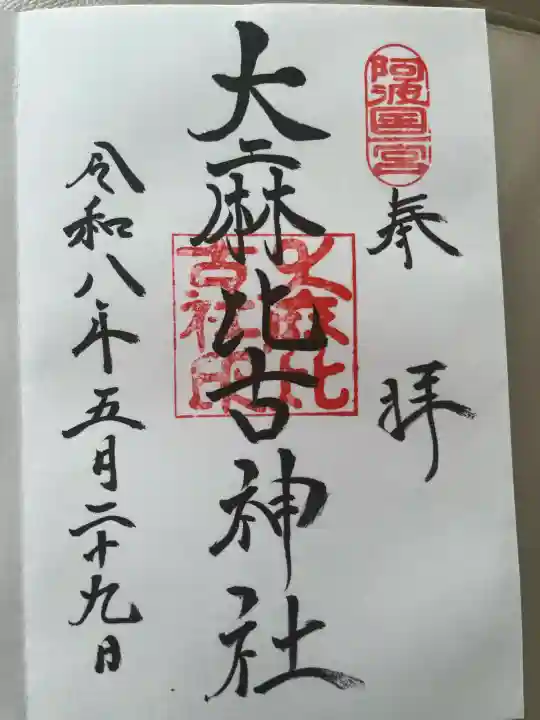 阿波国一宮
奉拝
大麻比古神社
大麻比
古社印
令和八年五月二十九日